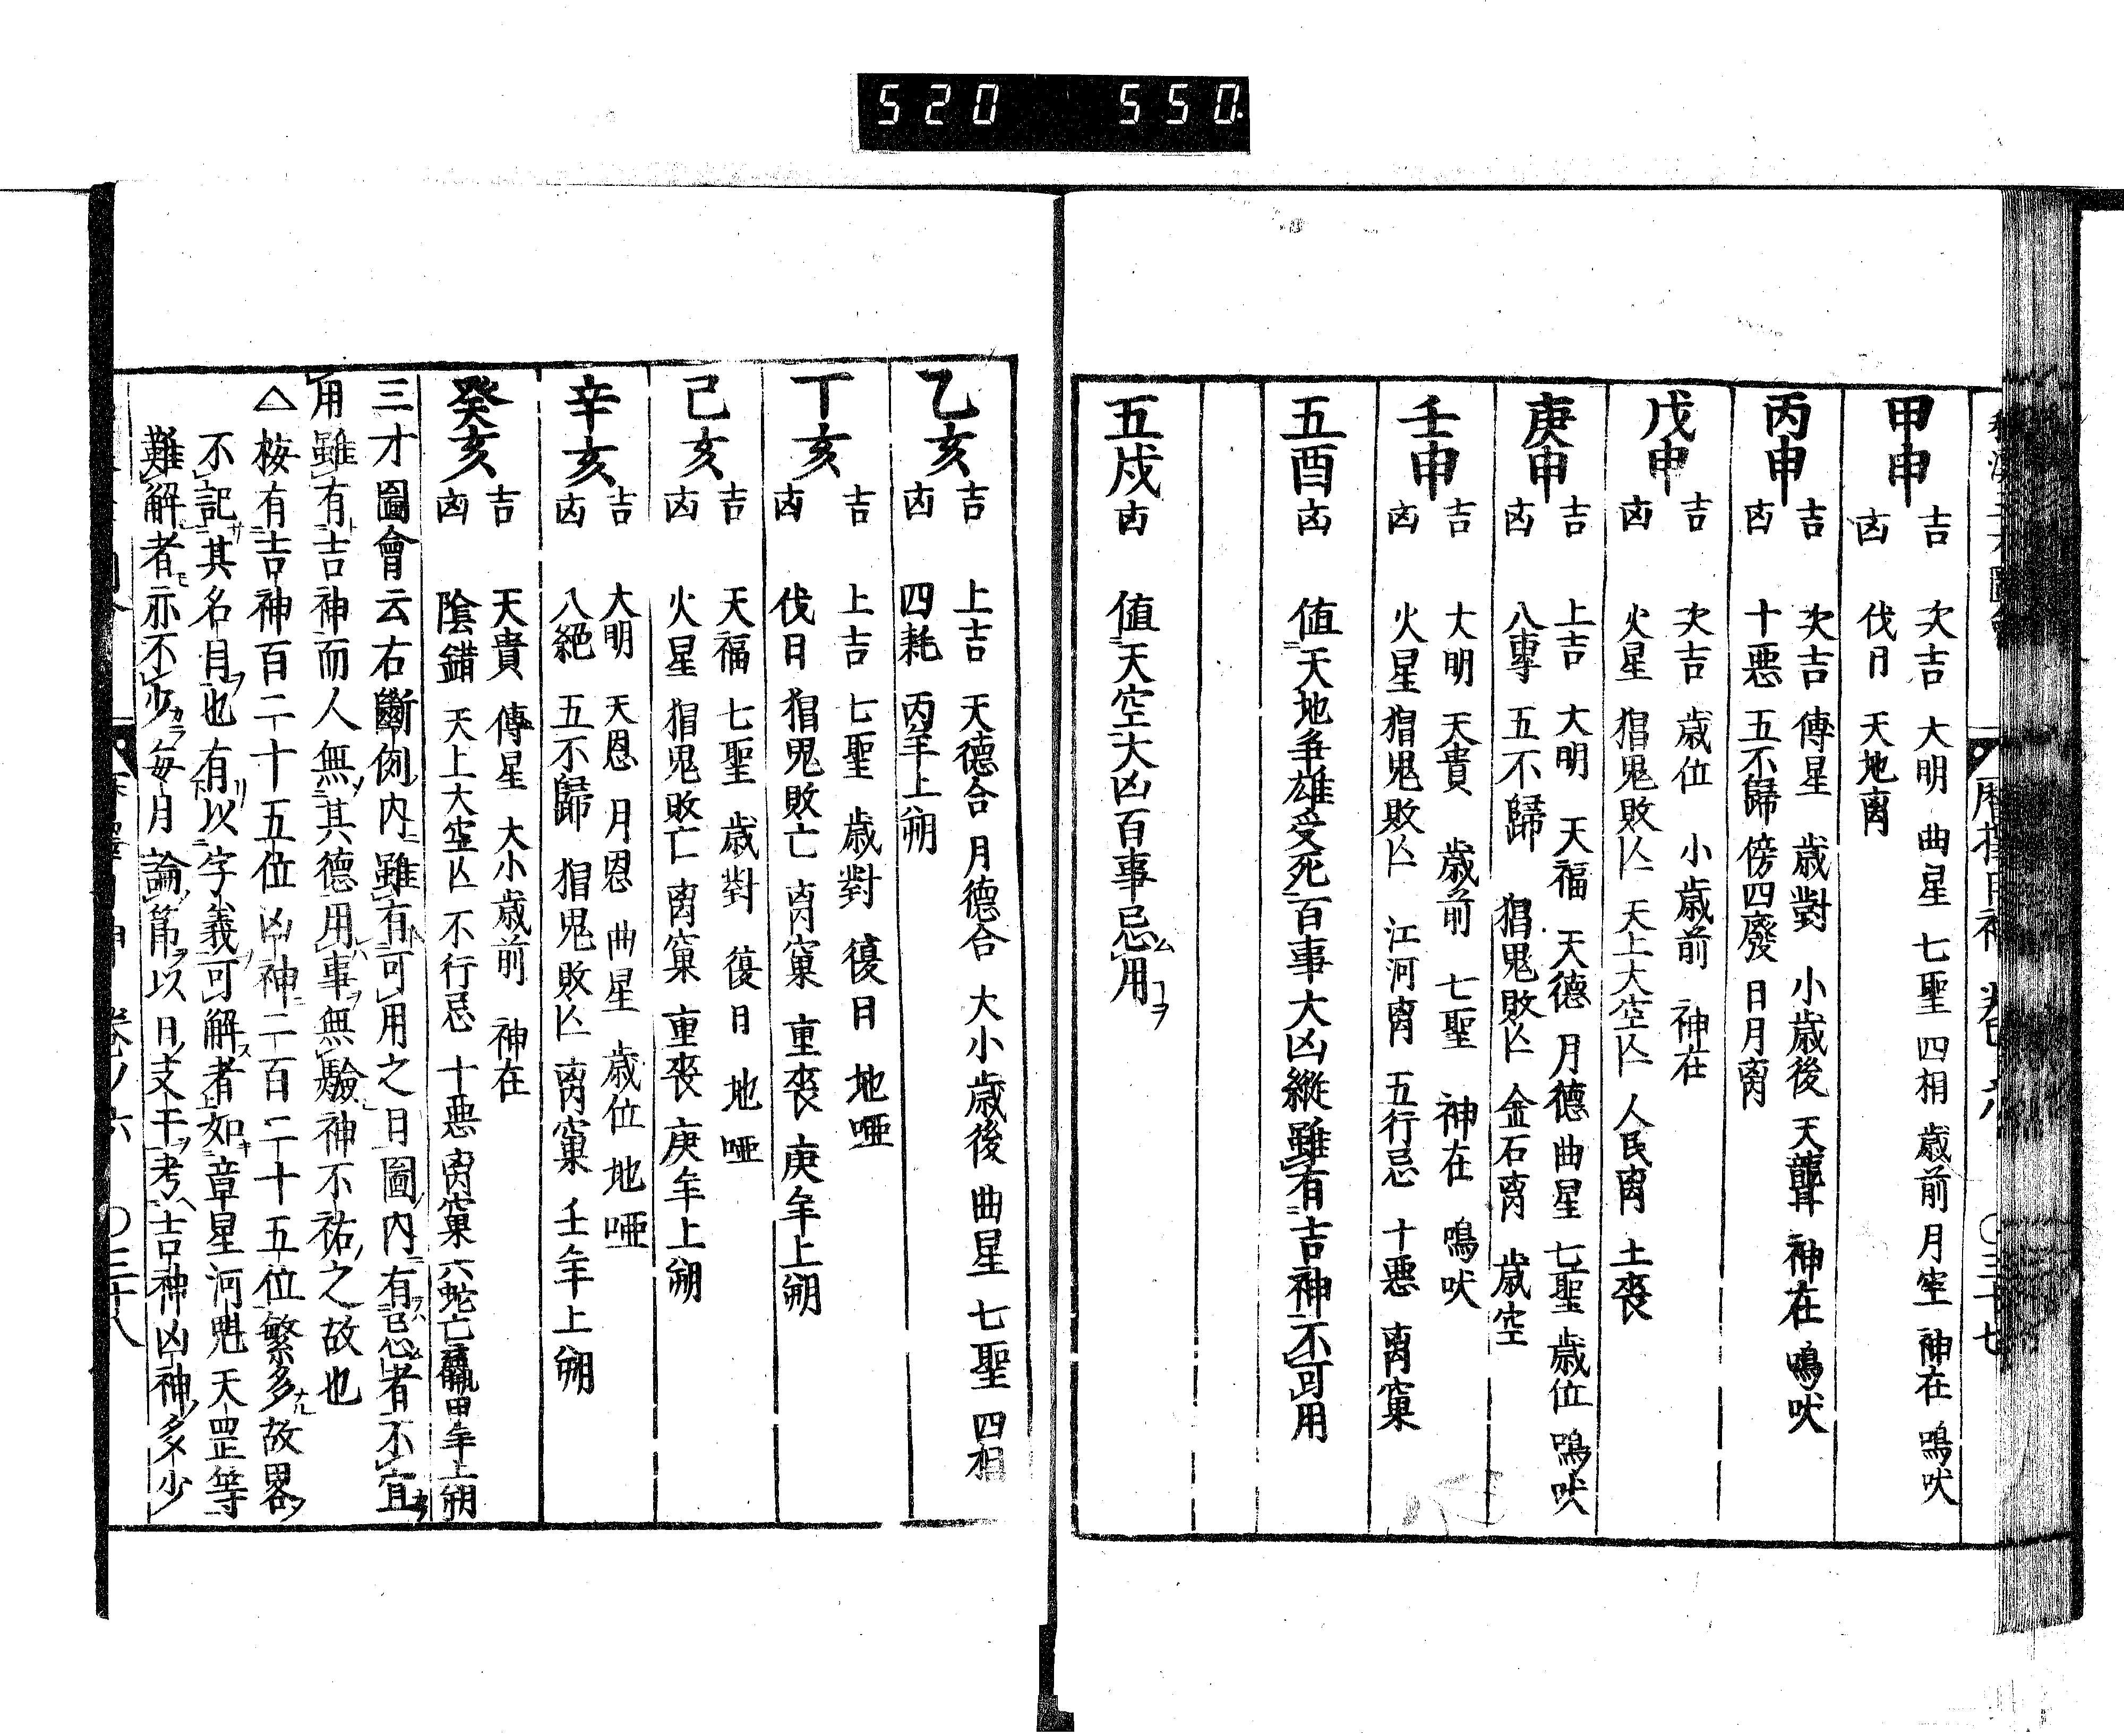 520 550
甲申
吉 次吉 大明 曲星 七聖 四相 歳前 月空 神在 鳴吠
凶 伐日 天地离
丙申
吉 次吉 傳星 歳對 小歳後 天聾 神在 鳴吠
凶 十悪 五不歸 傍四廢 日月离
戊申
吉 次吉 歳位 小歳前 神在
凶 火星 猖鬼敗亡 天上大空亡 人民离 土喪
庚申
吉 上吉 大明 天福 天德 月德 曲星 七聖 歳位 鳴吠
凶 八専 五不歸 猖鬼敗亡 金石离 歳空
壬申
吉 大明 天貴 歳前 七聖 神在 鳴吠
凶 火星 猖鬼敗亡 江河离 五行忌 十悪 离窠
五酉 凶 値天地争雄受死百事大凶縱雖有吉神不可用
五戍 凶 値天空大凶百事忌用
乙亥
吉 上吉 天德合 月德合 大小歳後 曲星 七聖 四相
凶 四耗 丙年上朔
丁亥
吉 上吉 七聖 歳對 復日 地啞
凶 伐日 猖鬼敗亡 离窠 重喪 庚年上朔
己亥
吉 天福 七聖 歳對 復日 地啞
凶 火星 猖鬼敗亡 离窠 重喪 庚年上朔
辛亥
吉 大明 天恩 月恩 曲星 歳位 地啞
凶 八絕 五不歸 猖鬼敗亡 离窠 壬年上朔
癸亥
吉 天貴 傳星 大小歳前 神在
凶 陰錯 天上大空亡 不行忌 十悪 离窠 六蛇亡羸 甲年上朔
三才圖會云右斷例内雖有可用之日圖内有忌者不宜
用雖有吉神而人無其德用事無驗神不祐之故也
△桉有吉神百二十五位凶神二百二十五位繁多故畧
不記其名目也有以字義可解者如章星河魁天罡等
難解者亦不少毎月論節以日支干考吉神凶神多少